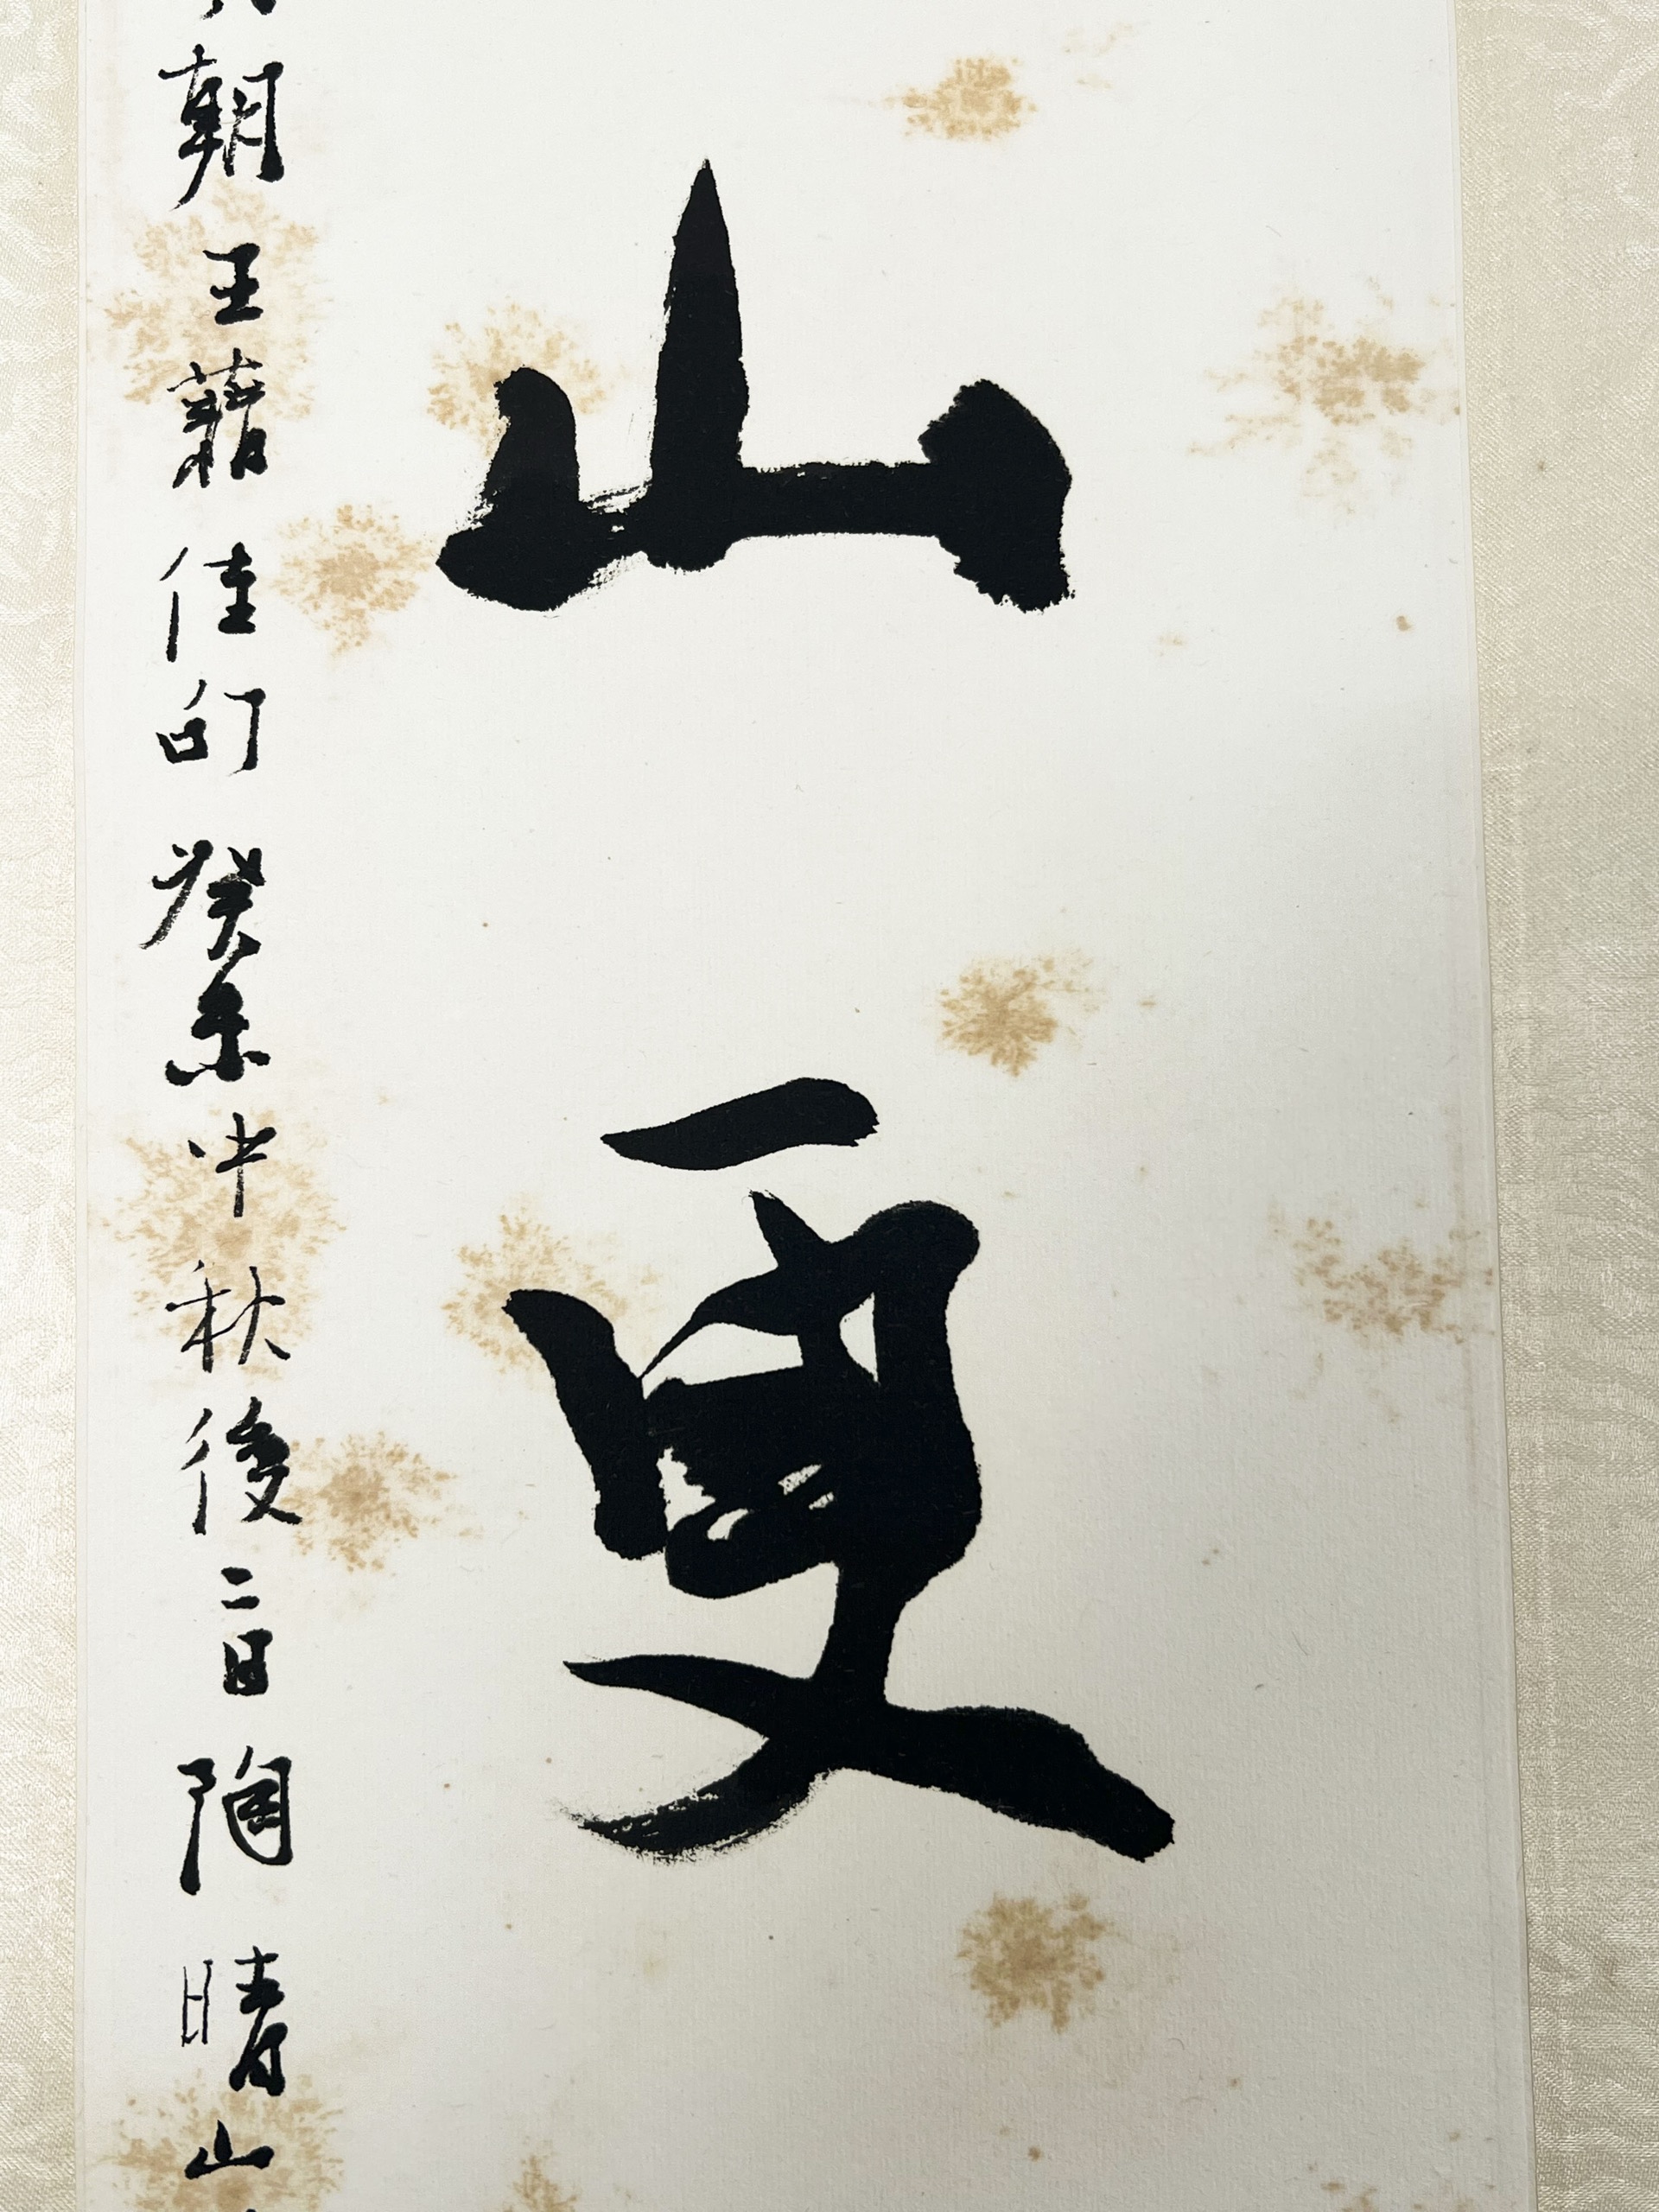 山更
朝王籍佳句癸未中秋後二日陶晴山